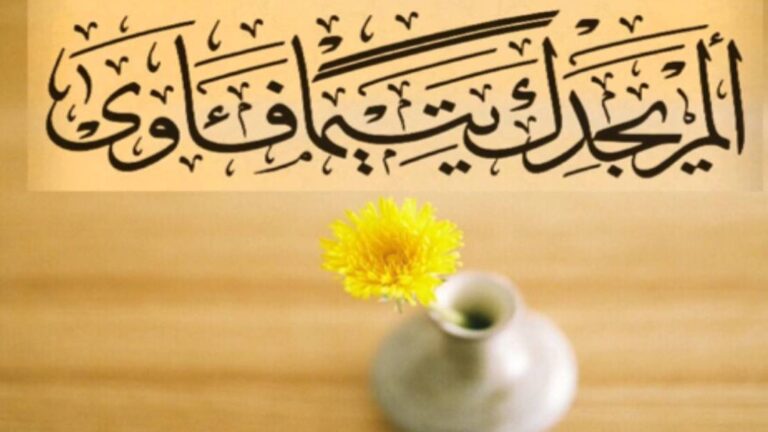 ألم يجدك يتيما فآوى